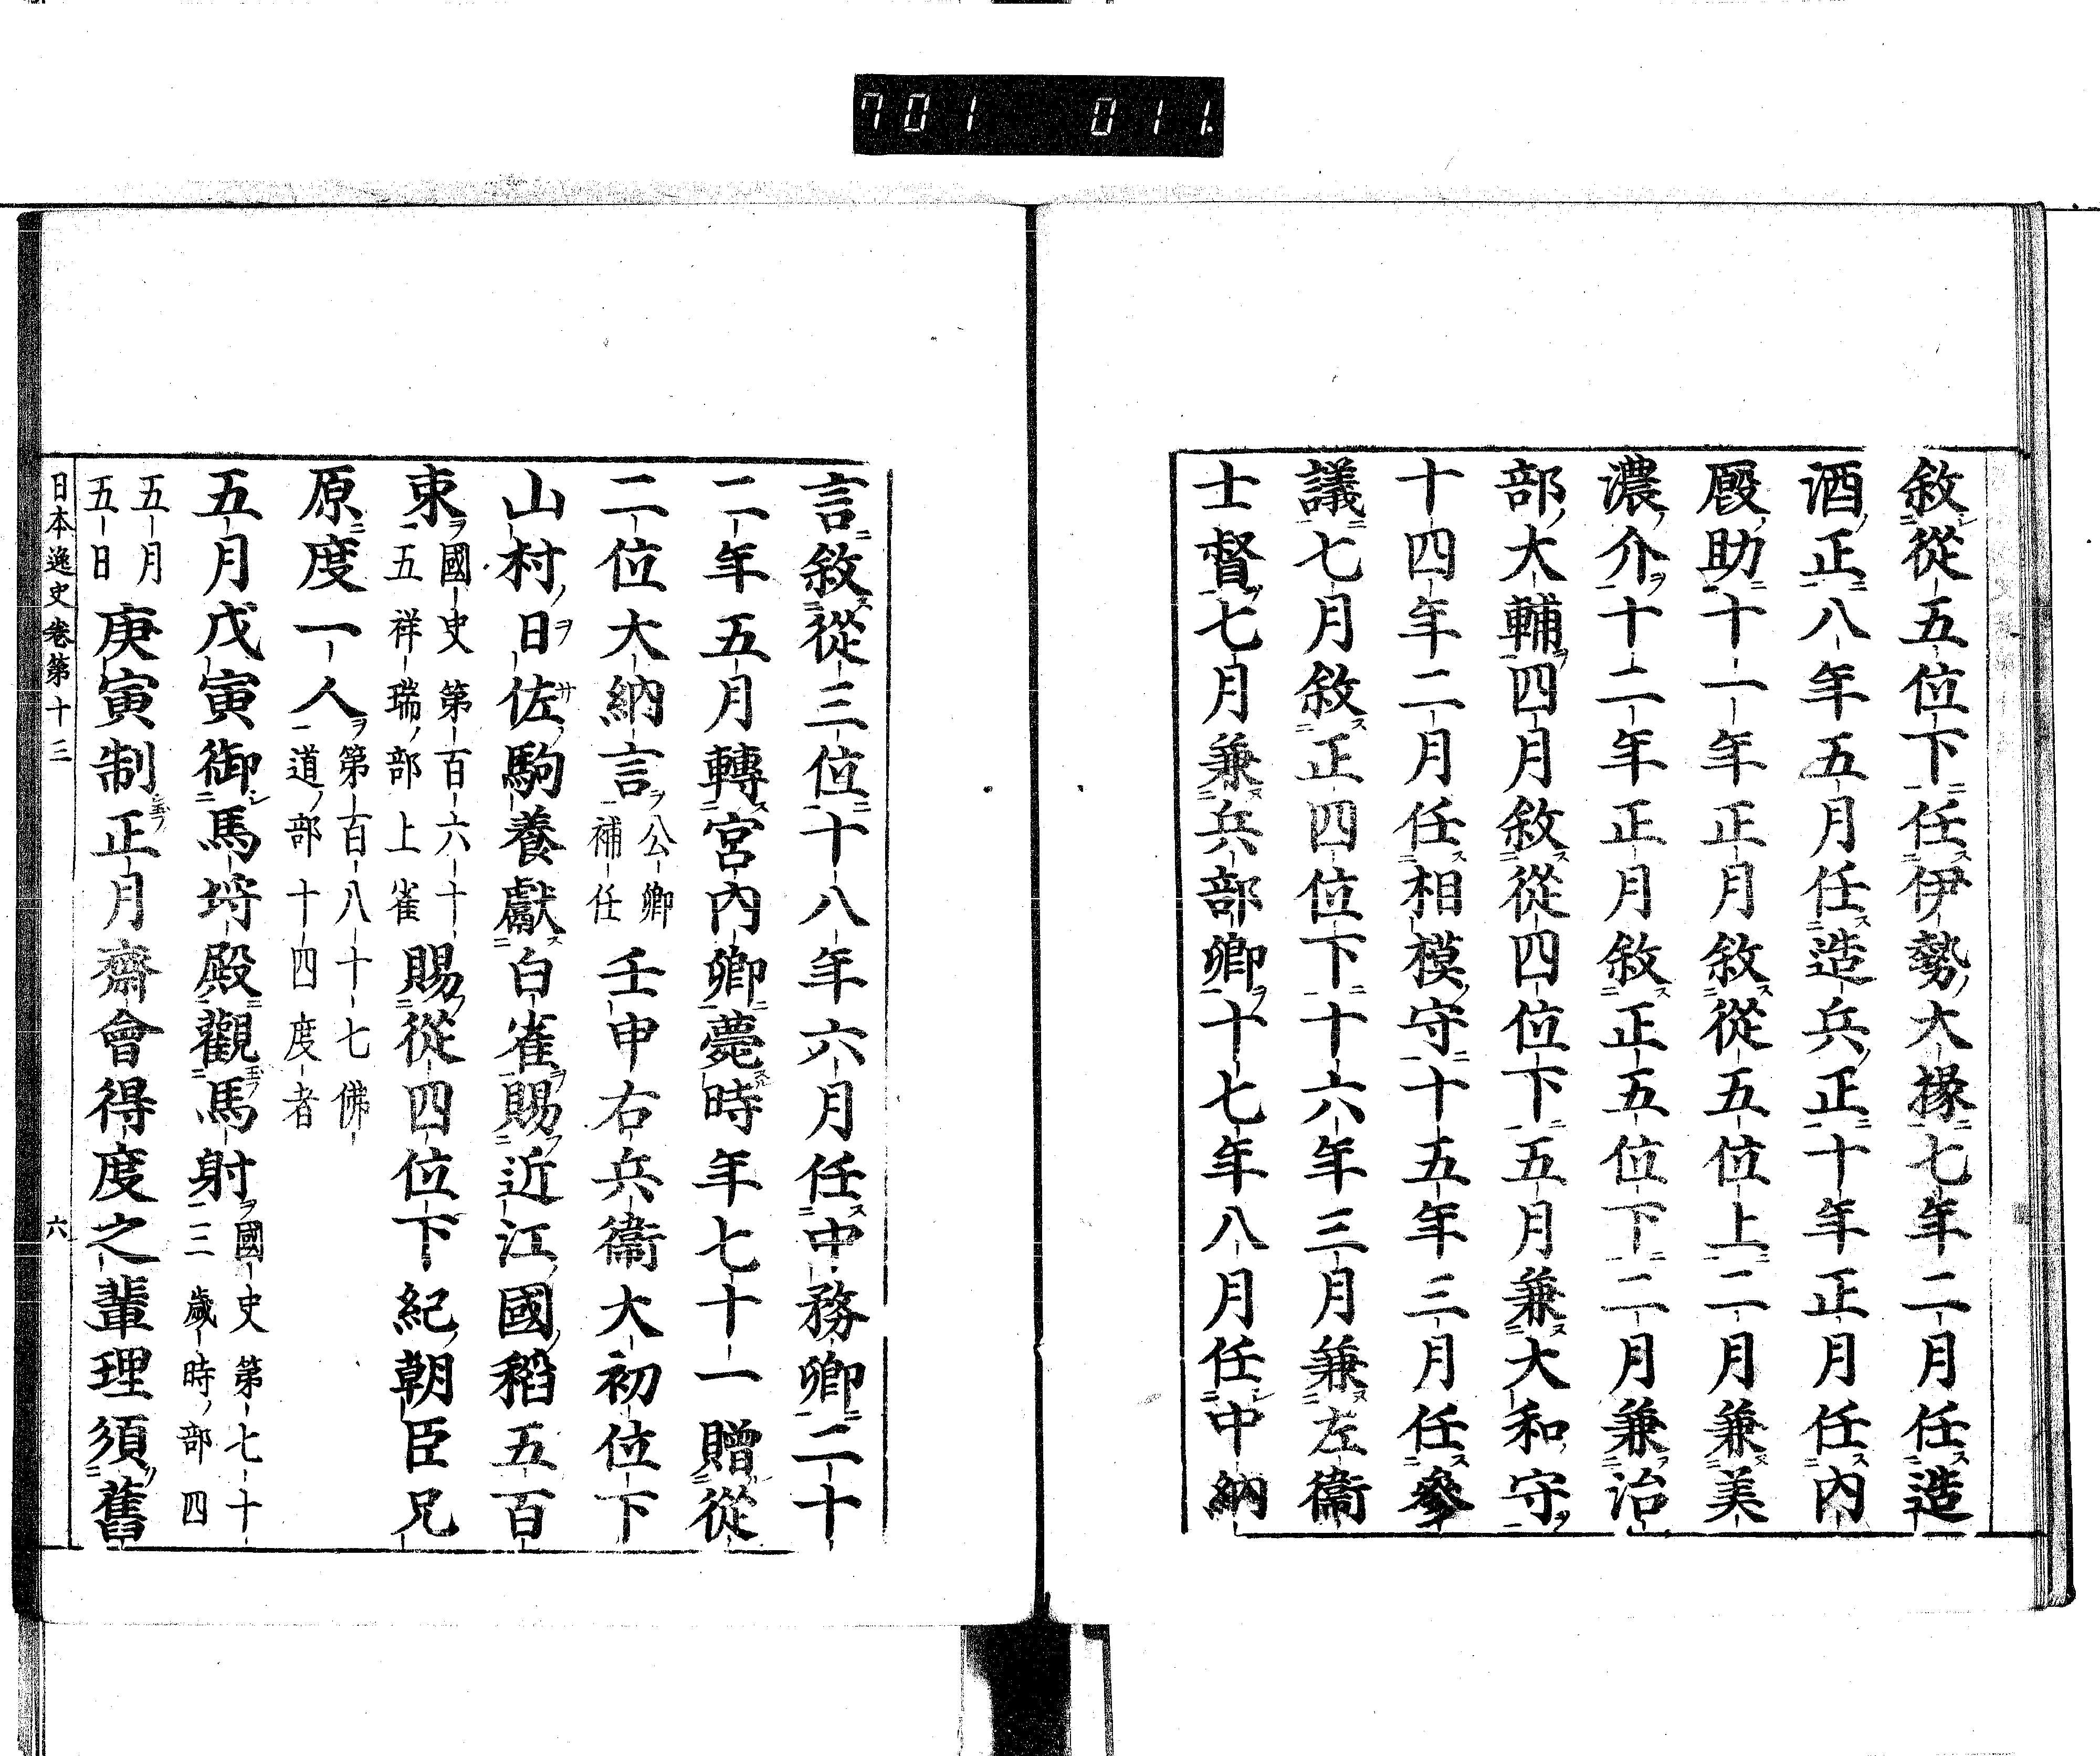 701 011
敘從五位下任伊勢大掾七年二月任造
酒正八年五月任造兵正十年正月任內
廐助十一年正月敘從五位上二月兼美
濃介十二年正月敘正五位下二月兼治
部大輔四月敘從四位下五月兼大和守
十四年二月任相模守十五年三月任參
議七月敘正四位下十六年三月兼左衞
士督七月兼兵部卿十七年八月任中納
言敘從三位十八年六月任中務卿二十
二年五月轉宮內卿薨時年七十一贈從
二位大納言公卿補任壬申右兵衞大初位下
山村日佐駒養獻白雀賜近江國稻五百
束國史第百六十五祥瑞部上雀賜從四位下紀朝臣兄
原度一人第百八十七佛道部十四度者
五月戊寅御馬埒殿觀馬射國史第七十三歲時部四
五月五日庚寅制正月齋會得度之輩理須舊
日本逸史卷第十三 六